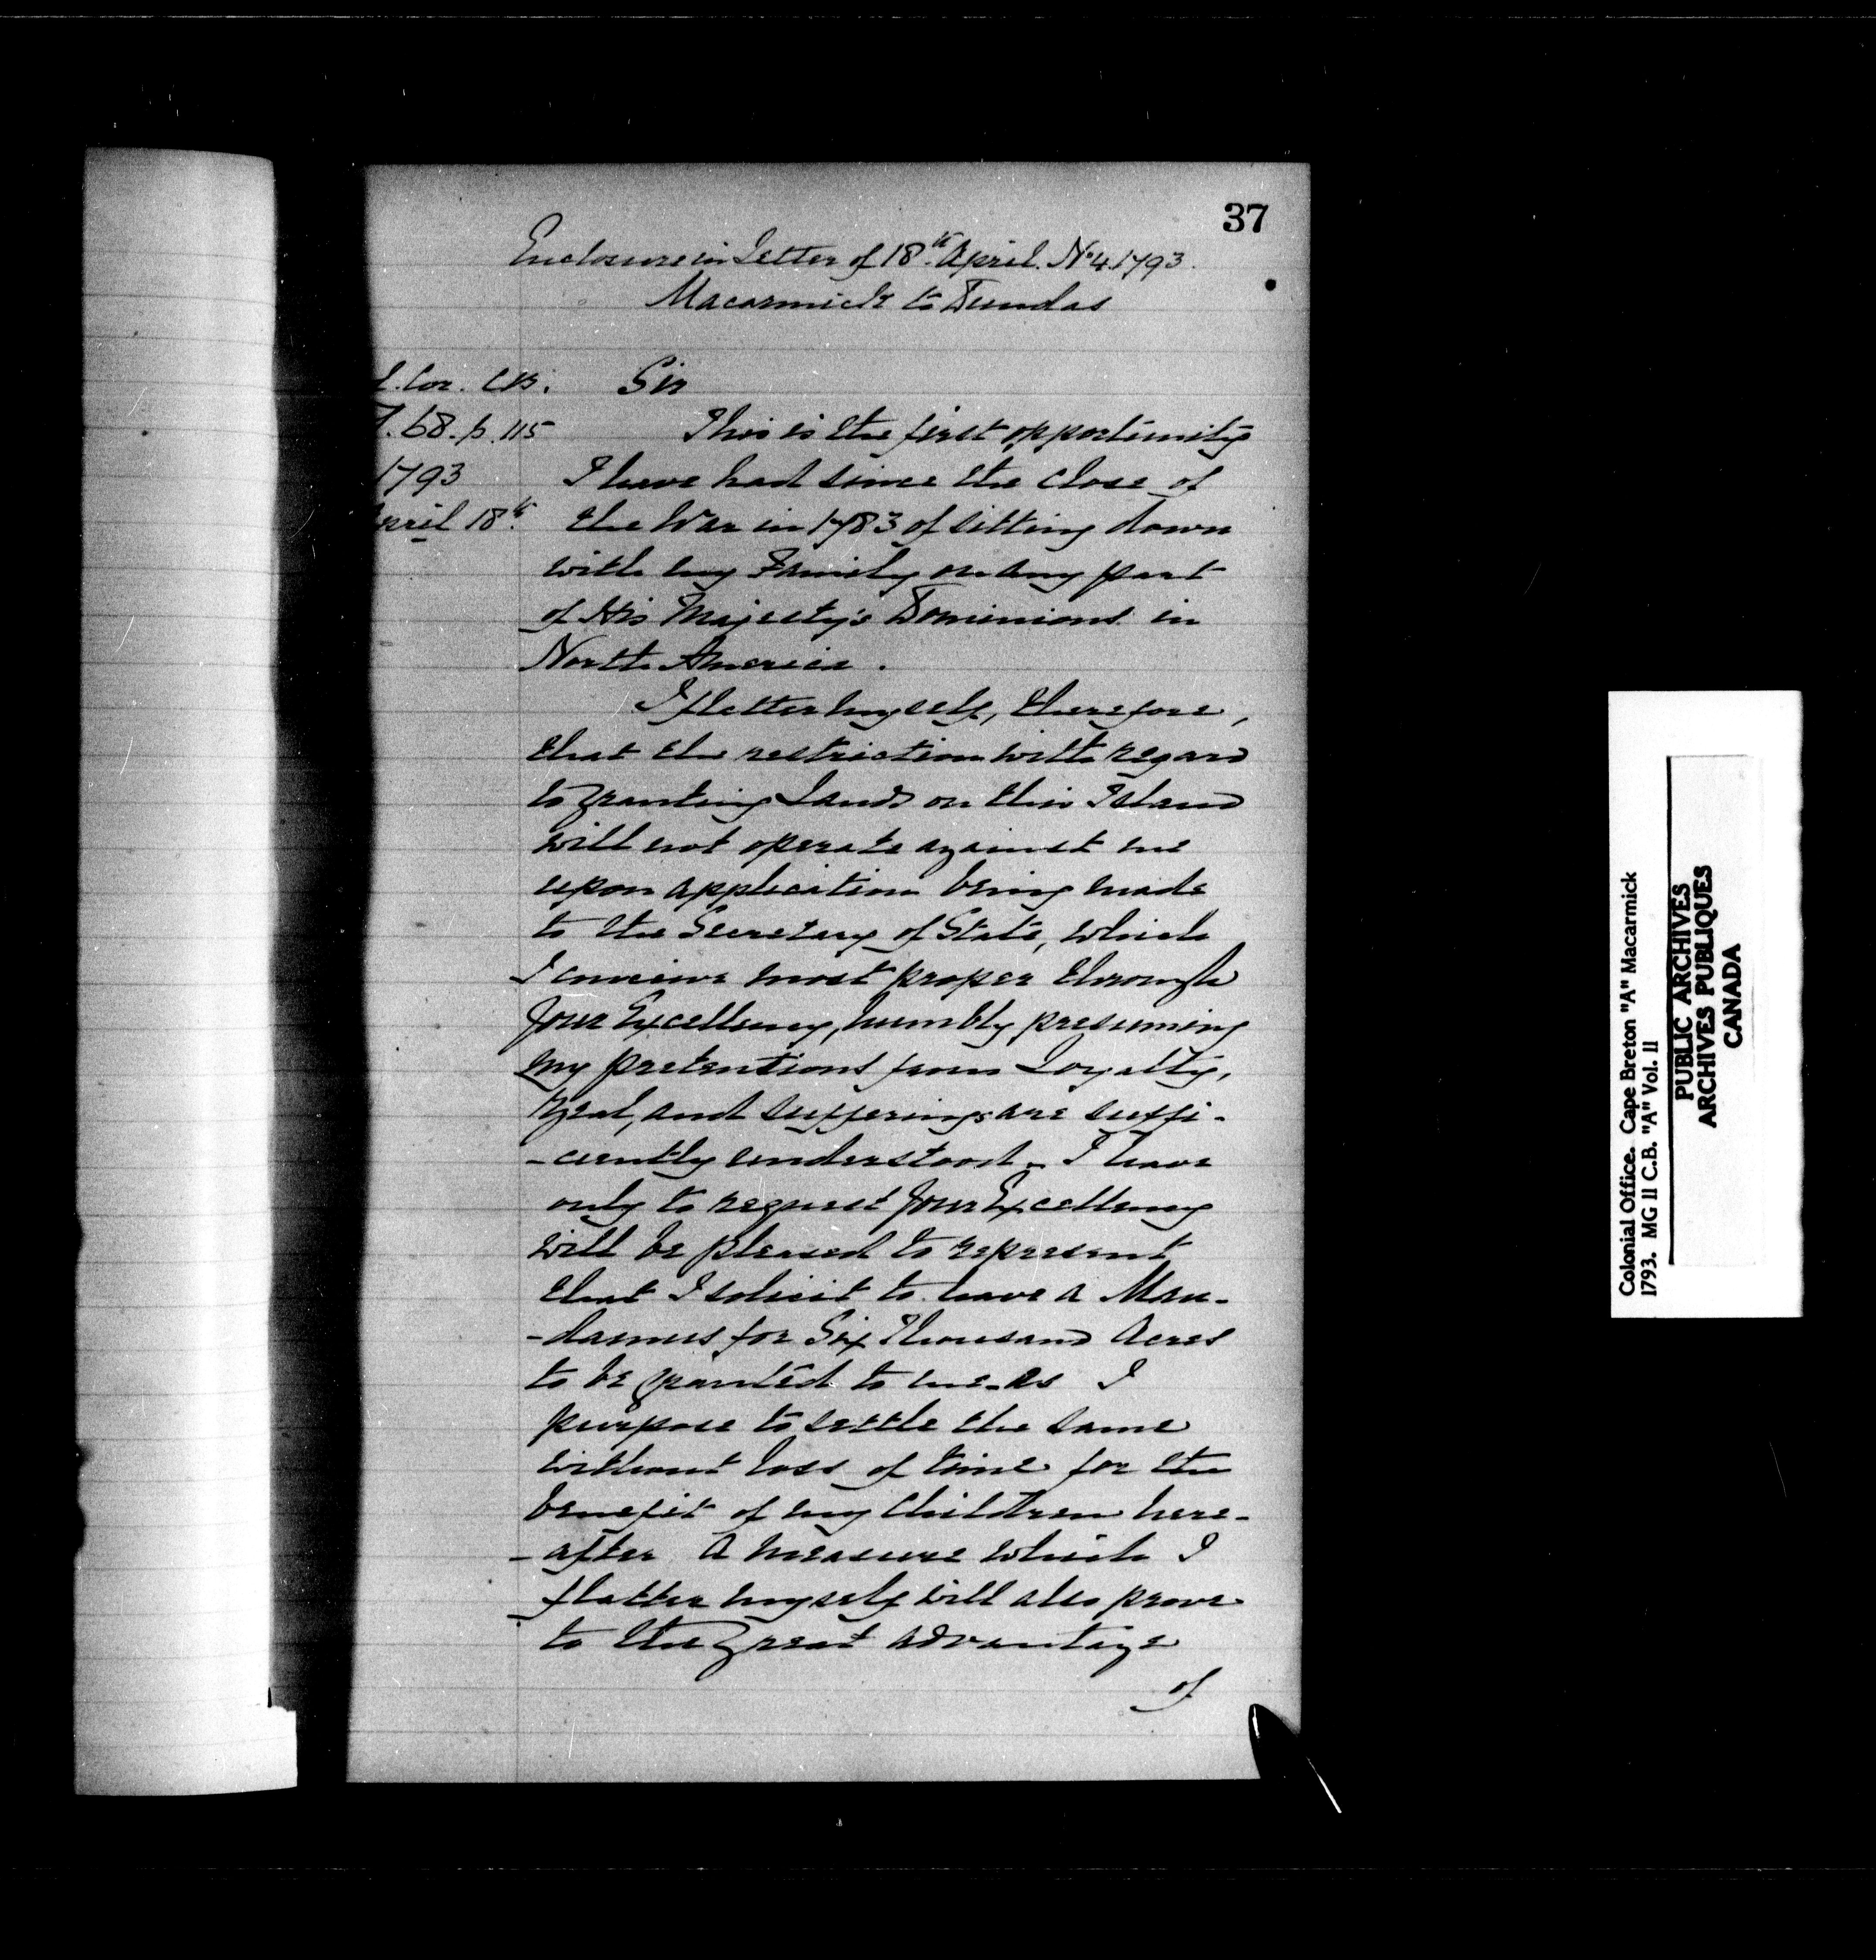 37
Enclosure in Letter of 18th April. No 4. 1793.
Macarmick to Dundas
Cor. C.B.
68. p. 115
1793
April 18th
Sir
This is the first opportunity
I have had since the close of
the War in 1783 of sitting down
with my Family on any part
of His Majesty's Dominions in
North America.
I flatter myself, therefore,
that the restriction with regard
to granting Lands on this Island
will not operate against me
upon application being made
to the Secretary of State, which
I conceive most proper through
Your Excellency, humbly presuming
my pretentions from Loyalty,
Zeal, and sufferings are suffi-
-ciently understood. I have
only to request Your Excellency
will be pleased to represent
that I solicit to have a Man-
-damus for Six Thousand Acres
to be granted to me - as I
purpose to settle the same
without loss of time for the
benefit of my Children here-
-after A measure which I
flatter myself will also prove
to the great advantage
of
Colonial Office. Cape Breton "A" Macarmick
1793. MG 11 C.B. "A" Vol. 11
PUBLIC ARCHIVES
ARCHIVES PUBLIQUES
CANADA